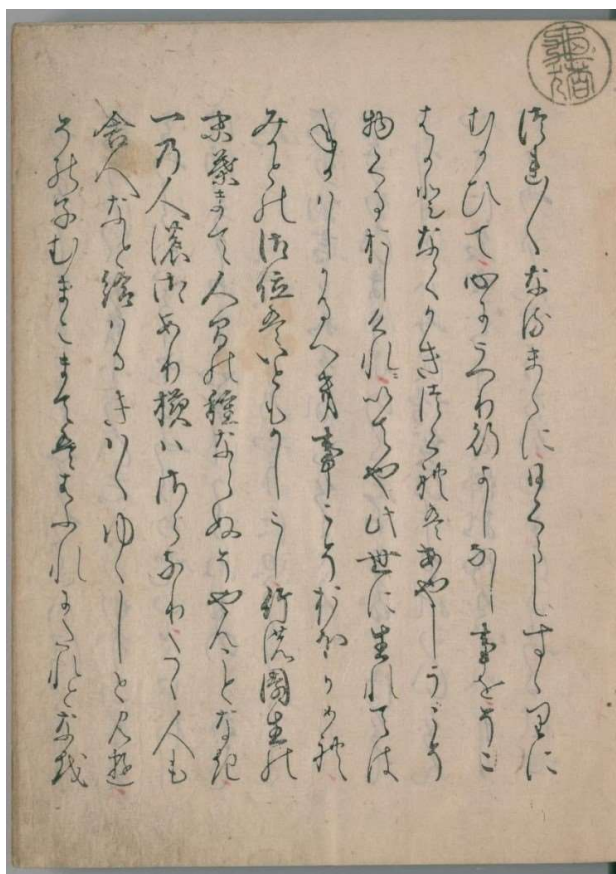 つれ〱なるまゝに日くらしすゝりに
むかひて心にうつり行よしなし事をそこ
はかとなくかきつくれはあやしうこそ
物くるおしけれいてや此世に生れては
ねかはしかるへき事こそおほかめれ
みかとの御位はいともかしこし竹の園生の
末葉まて人間の種ならぬそやんことなき
一乃人の御あり様ハさらなりたゝ人も
舎人なと給ハるきハゝゆゝしと見ゆ
その子むまこまてははふれにたれとなを